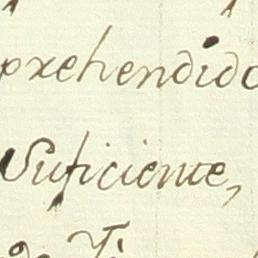 prehendido
Suficiente,